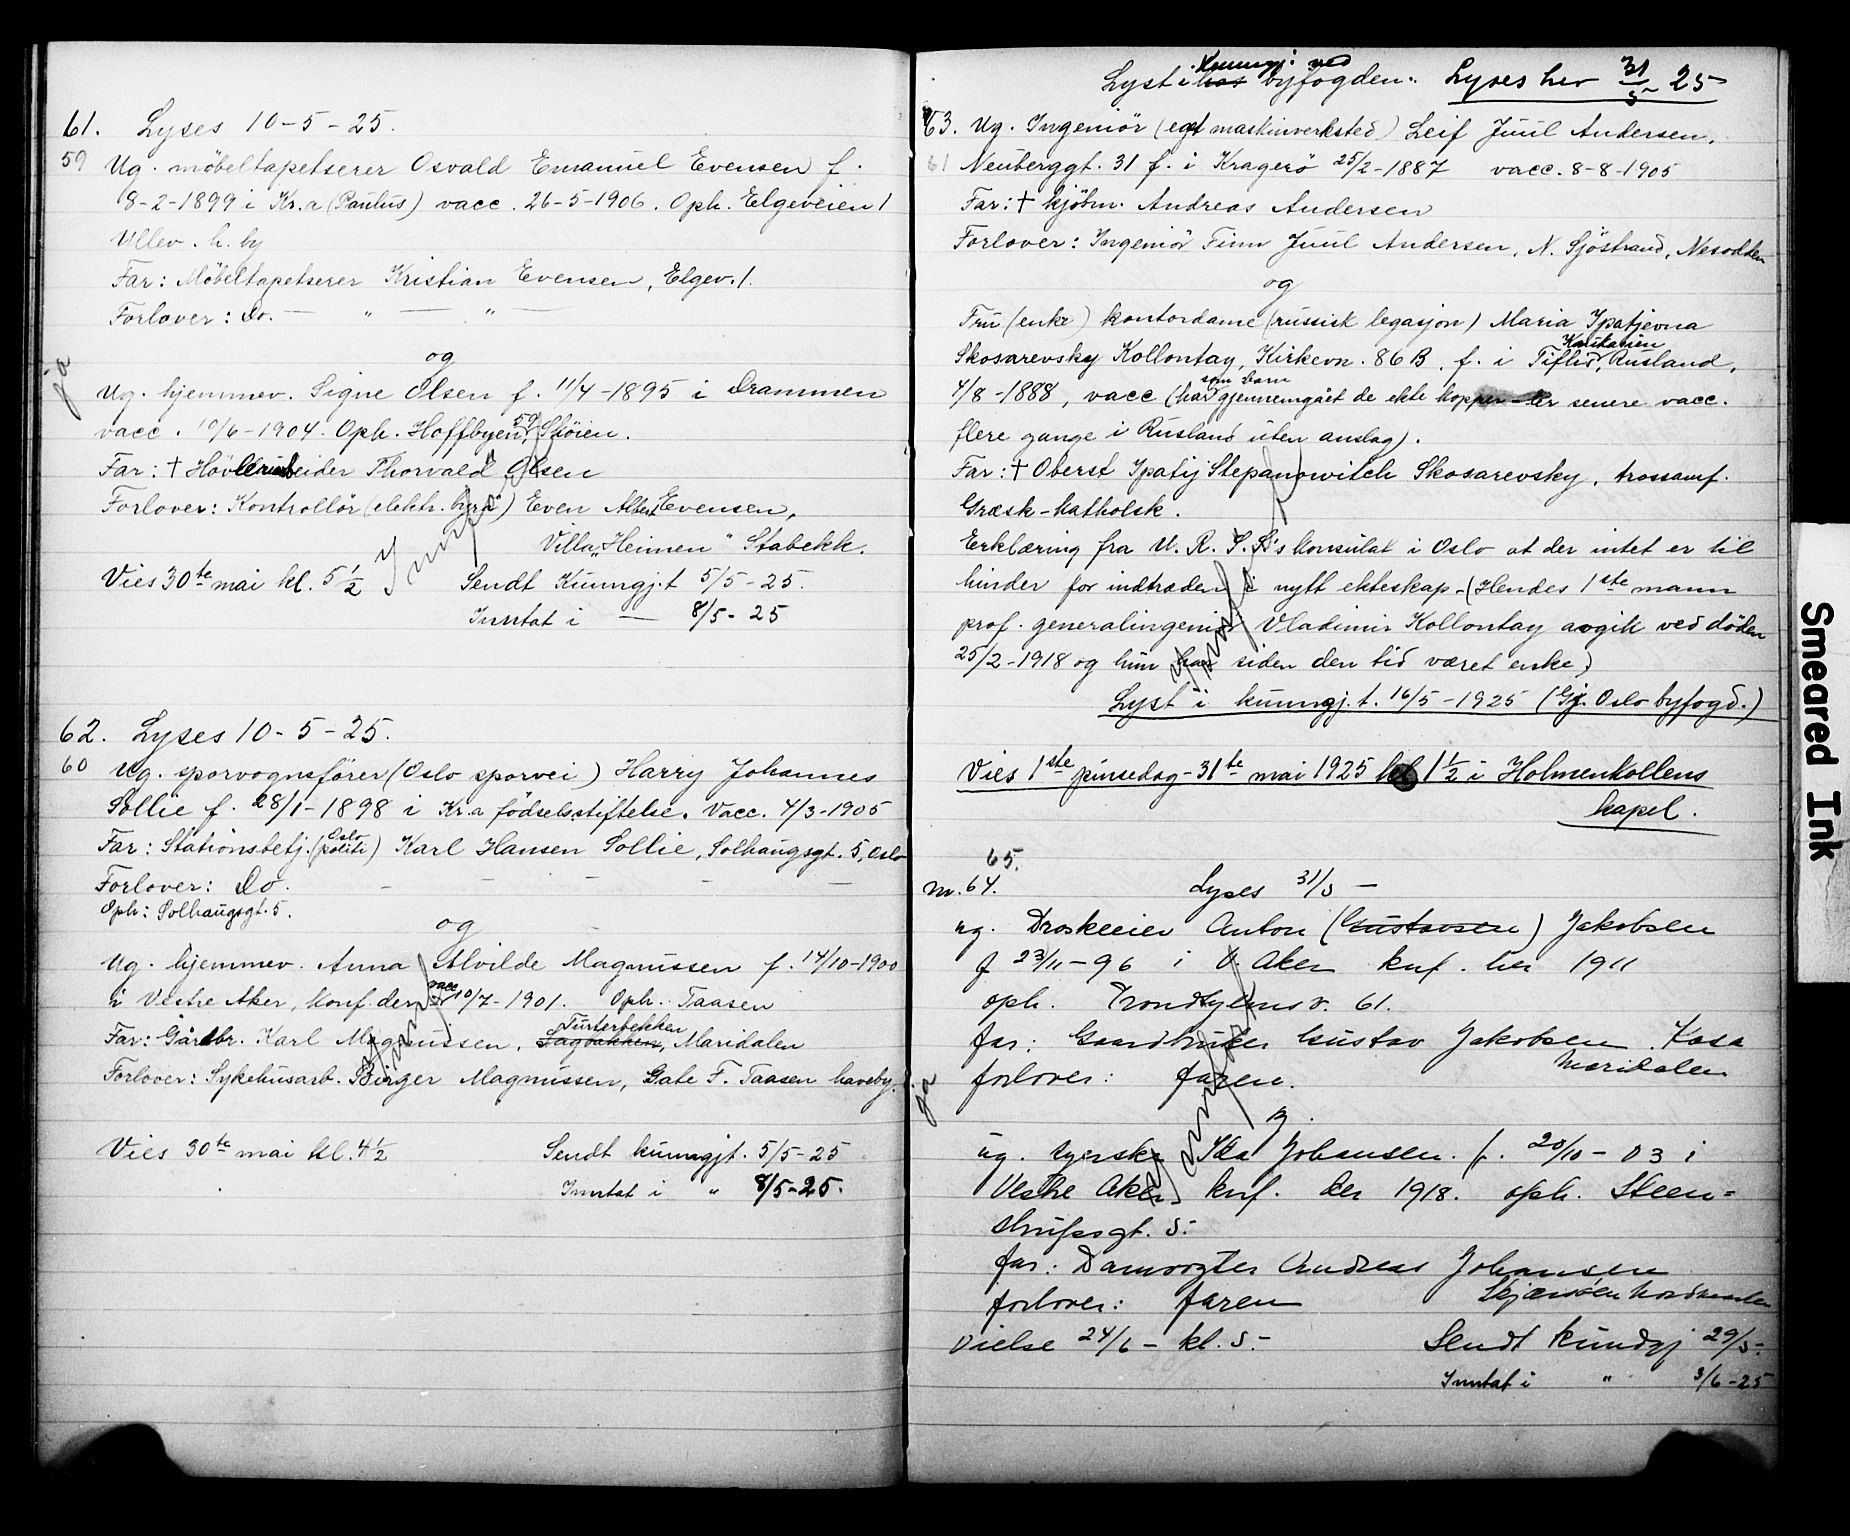 61. Lyses 10-5-25.
59 Ug. möbeltapetserer Osvald Emanuel Evensen f.
8-2-1899 i Kr.a (Paulus) vacc. 26-5-1906. Oph. Elgeveien 1
Ullev. h. by
Far: Möbeltapetserer Kristian Evensen, Elgev. 1.
Forlover: Do. — " — " —
og
ja
Ug. hjemmev. Signe Olsen f. 11/4-1895 i Drammen
vacc. 10/6-1904. Oph. Hoffbyen 59, Sköien.
Far: † Hövleriarbeider Thorvald Olsen
Forlover: Kontrollör (elektr. byrå) Even Albert Evensen,
Villa „Heimen" Stabekk.
Vies 30te mai kl. 5 1/2 Sendt Kunngj.t 5/5-25.
Inntat i — 8/5-25
62. Lyses 10-5-25.
60 Ug. sporvognsförer (Oslo sporvei) Harry Johannes
Sollie f. 28/1-1898 i Kr.a födselsstiftelse. Vacc. 4/3-1905
Far: Stationsbetj. (Oslo politi) Karl Hansen Sollie, Solhaugsgt. 5, Oslo
Forlover: Do. - - - - —
Oph: Solhaugsgt. 5.
og
Ug. hjemmev. Anna Alvilde Magnussen f. 14/10-1900
i Vestre Aker, konf. der vacc 10/7-1901. Oph. Taasen
Far: Gårdbr. Karl Magnussen, Turterbekken Sagbakken, Maridalen
Forlover: Sykehusarb. Birger Magnussen, Gate F. Taasen haveby.
Vies 30te mai kl. 4 1/2 Sendt kunngjt. 5/5-25
Inntat i " 8/5-25.
Lyst i kunngj. ved hos byfogden. Lyses her 31/5-25
63. Ug. Ingeniör (eget maskinverksted) Leif Juul Andersen,
61 Neuberggt. 31 f. i Kragerö 25/2-1887 vacc. 8-8-1905
Far: † kjöbm. Andreas Andersen
Forlover: Ingeniör Finn Juul Andersen, N. Sjöstrand, Nesodden
og
Fru (enke) kontordame (russisk legasjon) Maria Ypatjevna
Skosarevsky Kollontay, Kirkevn. 86 B, f. i Tiflis, Kaukasien Rusland,
4/8-1888, vacc (har som barn gjennemgået de ekte kopper - er senere vacc.
flere gange i Rusland uten anslag).
Far: † Oberst Ypatij Stepanowitch Skosarevsky, trossamf.
Græsk-katholsk.
Erklæring fra U. R. S. S's konsulat i Oslo at der intet er til
hinder for indtræden i nytt ekteskap - (Hendes 1ste mann
prof. generalingeniör Vladimir Kollontay avgik ved döden
25/2-1918 og hun har siden den tid været enke)
Lyst i kunngj.t. 16/5-1925 (Gj. Oslo byfogd.)
Vies 1ste pinsedag - 31te mai 1925 kl. 1 1/2 i Holmenkollens
kapel.
65.
nr. 64. Lyses 31/5 —
ug. Droskeeier Anton (Gustavsen) Jakobsen
f 23/11-96 i V. Aker knf. her 1911
oph. Trondhjemsv. 61.
far: Gaardbruker Gustav Jakobsen. Kasa
Maridalen
forlover: faren.
ja
og
ug. syerske Ida Johansen. f. 20/10-03 i
Vestre Aker knf. der 1918. oph. Steen=
strupsgt. 5.
far: Damvogter Andreas Johansen
Skjærsöen Nordmarken
forlover: faren
Vielse 24/6 - kl. 5.- Sendt kundgj 29/5.
Inntat i " 3/6-25
Smeared Ink